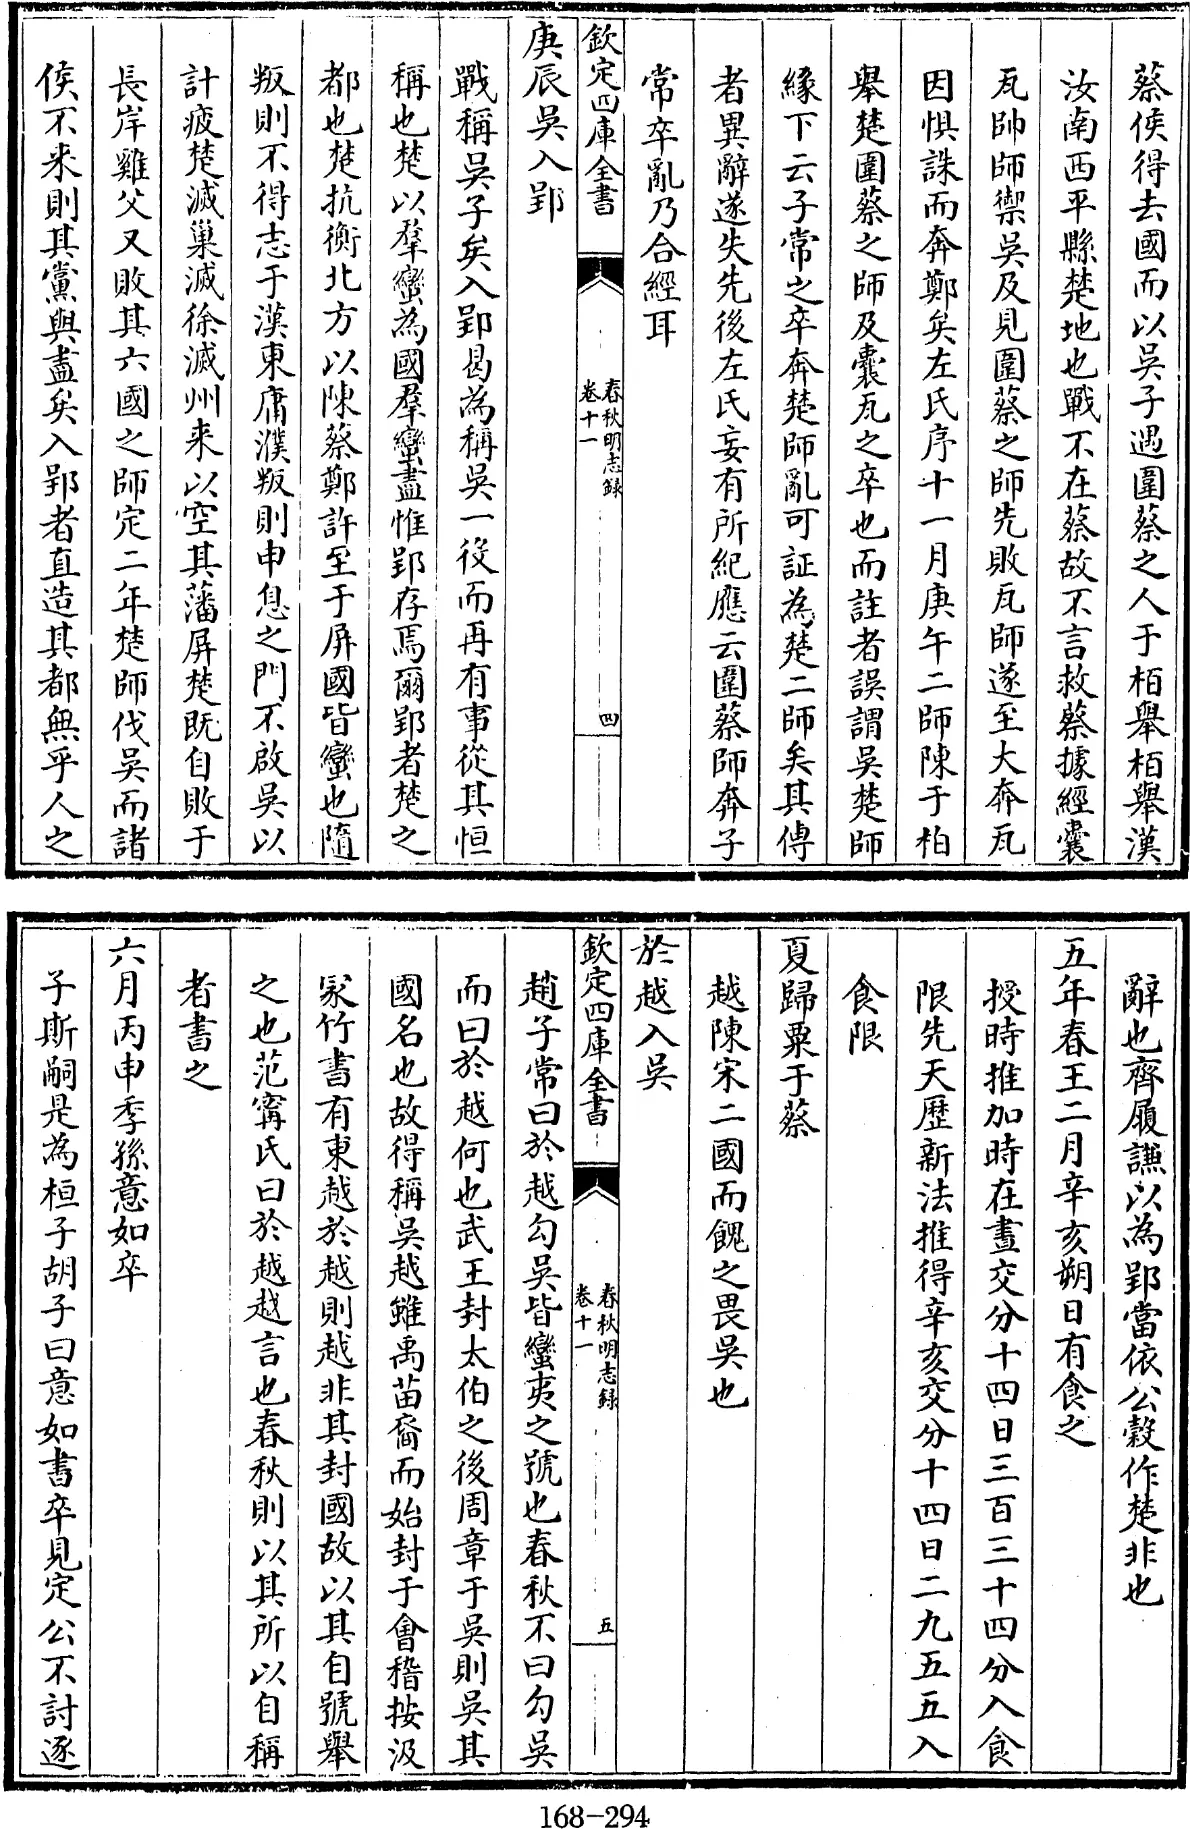 蔡侯得去國而以吳子遇圍蔡之人于栢舉栢舉漢
汝南西平縣楚地也戰不在蔡故不言救蔡據經囊
瓦帥師禦吳及見圍蔡之師先敗瓦師遂至大奔瓦
因惧誅而奔鄭矣左氏序十一月庚午二師陳于柏
舉楚圍蔡之師及囊瓦之卒也而註者誤謂吳楚師
緣下云子常之卒奔楚師亂可証為楚二師矣其傳
者異辭遂失先後左氏妄有所紀應云圍蔡師奔子
常卒亂乃合經耳
欽定四庫全書
春秋明志録
卷十一
四
庚辰吳入郢
戰稱吳子矣入郢曷為稱吳一役而再有事從其恒
稱也楚以羣蠻為國羣蠻盡惟郢存焉爾郢者楚之
都也楚抗衡北方以陳蔡鄭許至于屏國皆蠻也隨
叛則不得志于漢東庸濮叛則申息之門不啟吳以
計疲楚滅巢滅徐滅州来以空其藩屏楚既自敗于
長岸雞父又敗其六國之師定二年楚師伐吳而諸
侯不来則其黨與盡矣入郢者直造其都無乎人之
辭也齊履謙以為郢當依公穀作楚非也
五年春王二月辛亥朔日有食之
授時推加時在晝交分十四日三百三十四分入食
限先天歷新法推得辛亥交分十四日二九五五入
食限
夏歸粟于蔡
越陳宋二國而餽之畏吳也
於越入吳
欽定四庫全書
春秋明志録
卷十一
五
趙子常曰於越勾吳皆蠻夷之號也春秋不曰勾吳
而曰於越何也武王封太伯之後周章于吳則吳其
國名也故得稱吳越雖禹苗裔而始封于會稽按汲
冢竹書有東越於越則越非其封國故以其自號舉
之也范甯氏曰於越越言也春秋則以其所以自稱
者書之
六月丙申季孫意如卒
子斯嗣是為桓子胡子曰意如書卒見定公不討逐
168-294